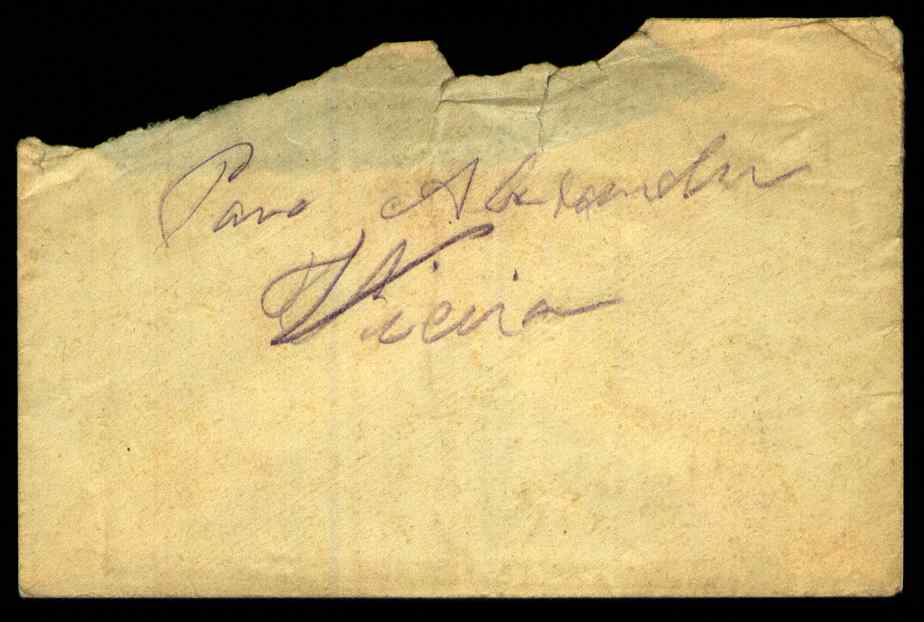 Para Alexandre
Vieira